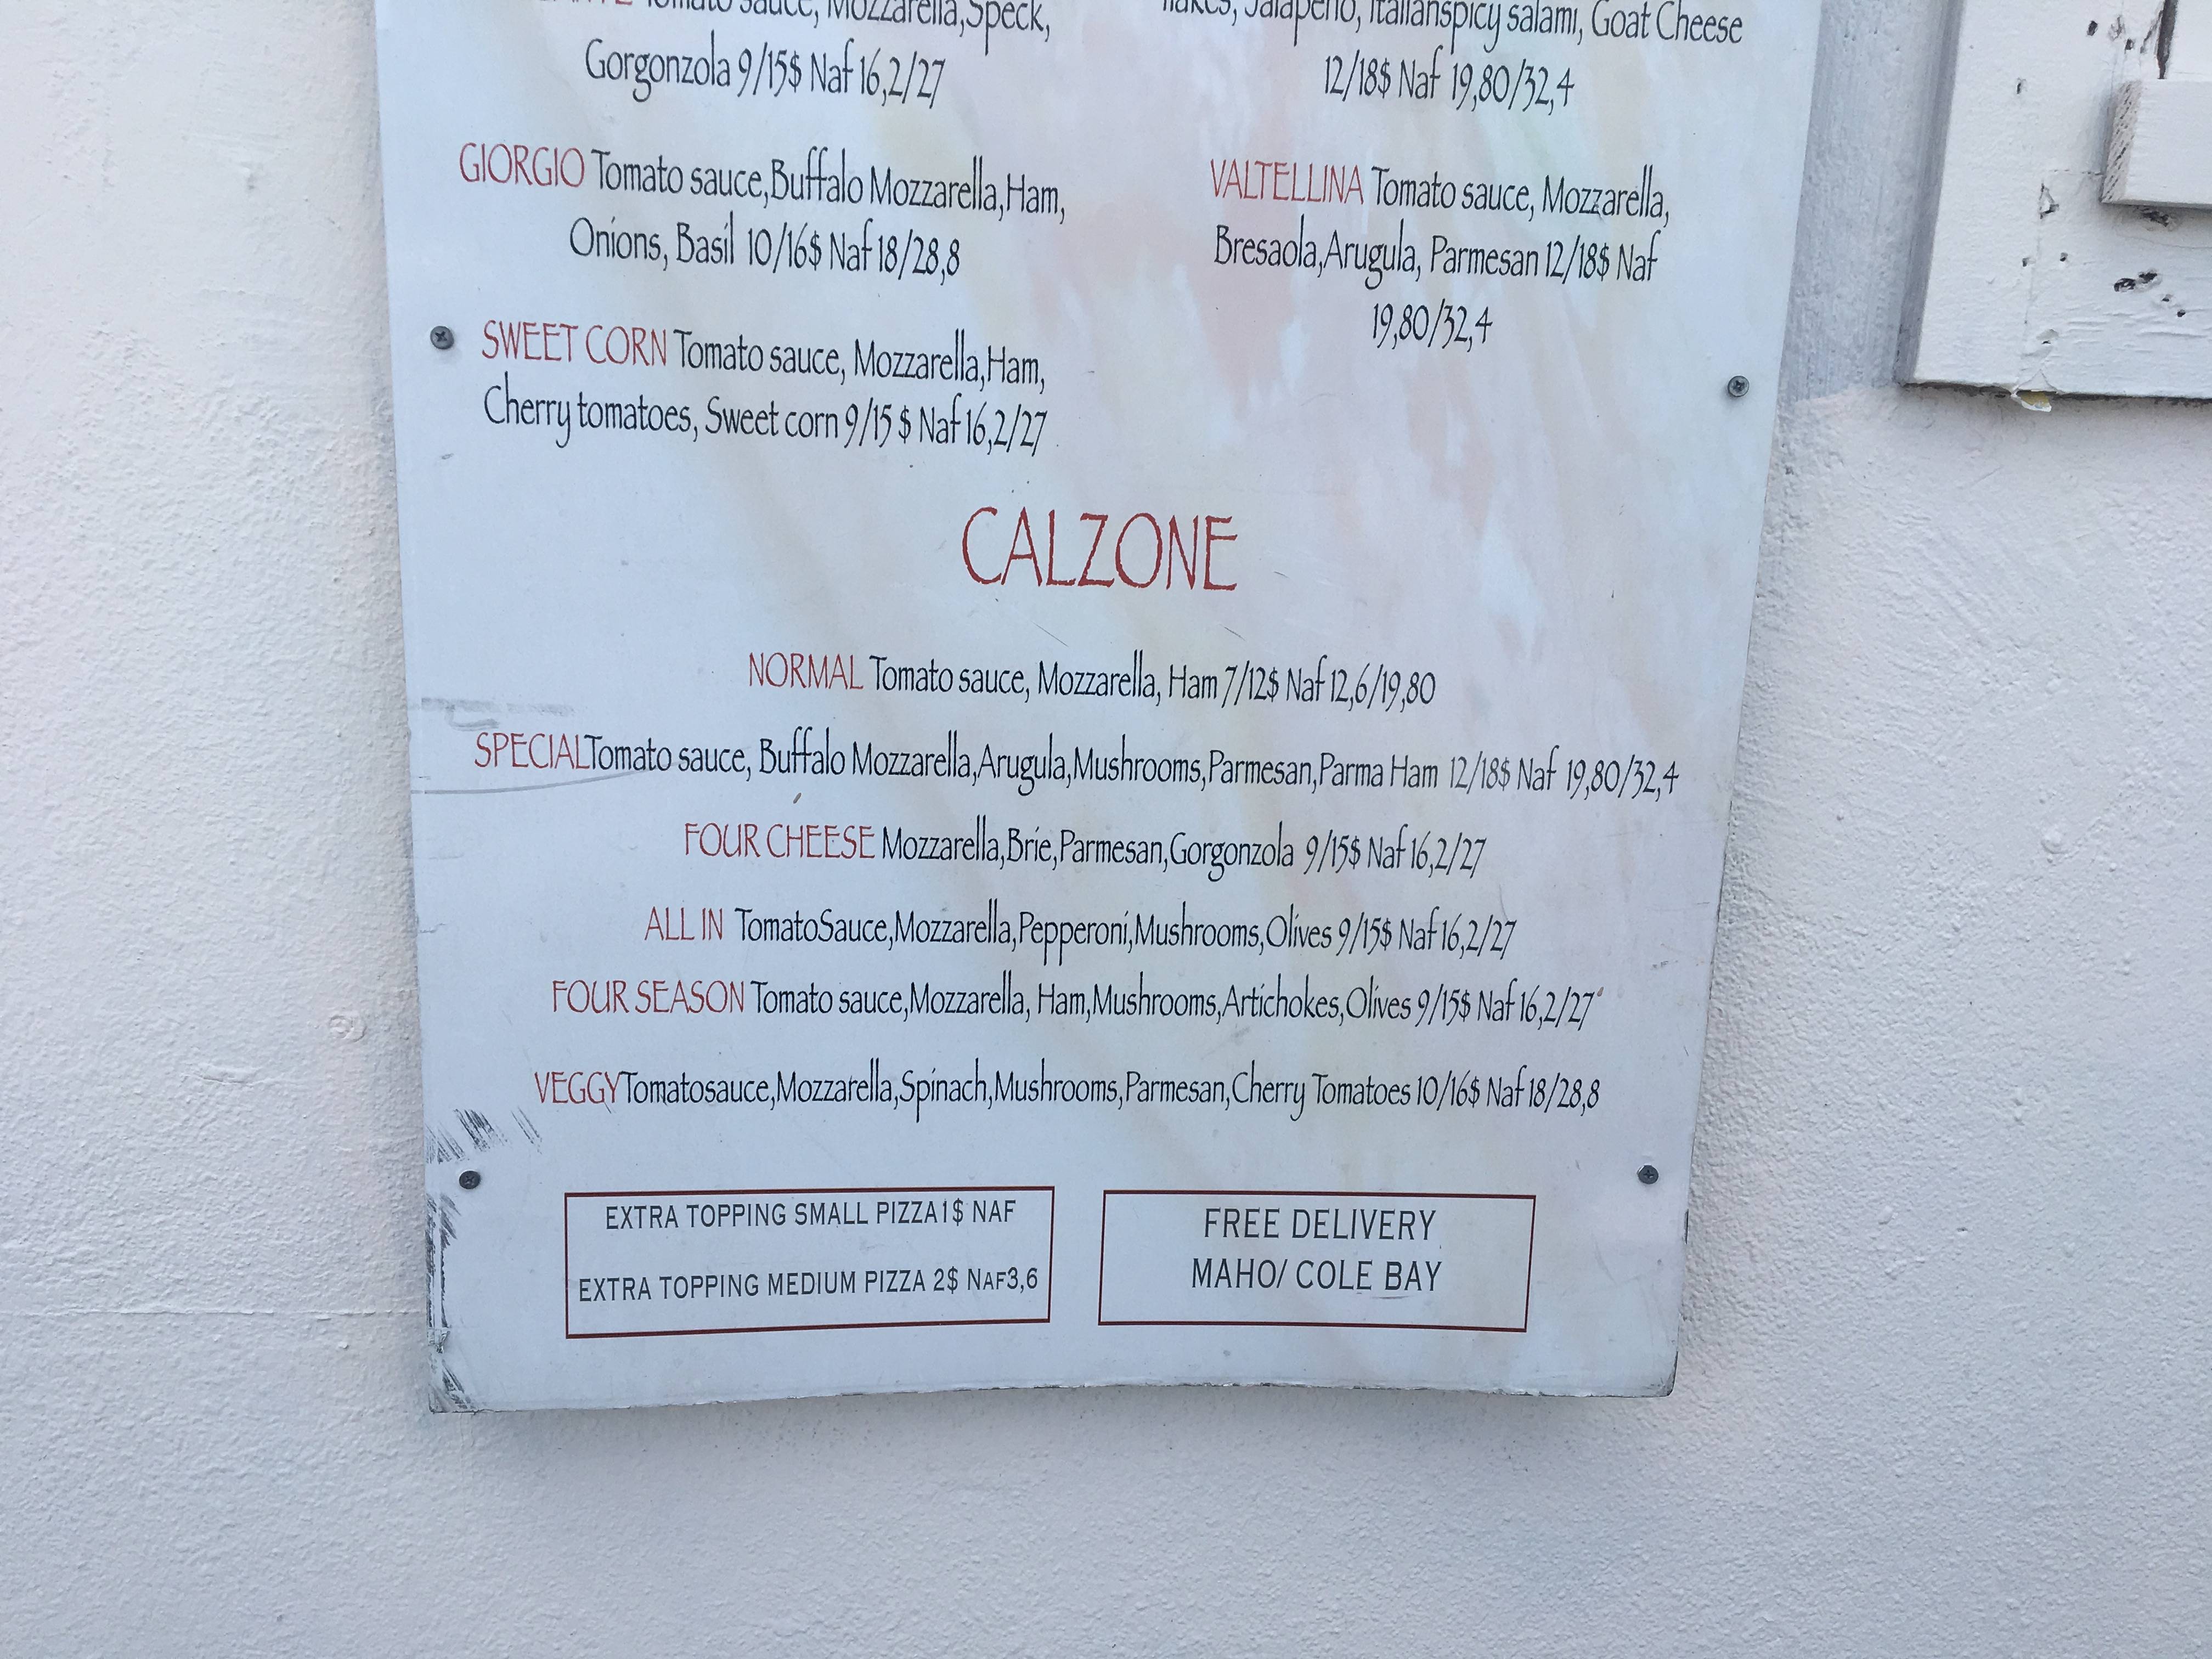 Tomato sauce, Mozzarella,Speck,
Gorgonzola 9/15$ Naf 16,2/27
GIORGIO Tomato sauce,Buffalo Mozzarella,Ham,
Onions, Basil 10/16$ Naf 18/28,8
SWEET CORN Tomato sauce, Mozzarella,Ham,
Cherry tomatoes, Sweet corn 9/15 $ Naf 16,2/27
flakes, Jalapeno, Italianspicy salami, Goat Cheese
12/18$ Naf 19,80/32,4
VALTELLINA Tomato sauce, Mozzarella,
Bresaola,Arugula, Parmesan 12/18$ Naf
19,80/32,4
CALZONE
NORMAL Tomato sauce, Mozzarella, Ham 7/12$ Naf 12,6/19,80
SPECIALTomato sauce, Buffalo Mozzarella,Arugula,Mushrooms,Parmesan,Parma Ham 12/18$ Naf 19,80/32,4
FOUR CHEESE Mozzarella,Brie,Parmesan,Gorgonzola 9/15$ Naf 16,2/27
ALL IN TomatoSauce,Mozzarella,Pepperoni,Mushrooms,Olives 9/15$ Naf 16,2/27
FOUR SEASON Tomato sauce,Mozzarella, Ham,Mushrooms,Artichokes,Olives 9/15$ Naf 16,2/27
VEGGYTomatosauce,Mozzarella,Spinach,Mushrooms,Parmesan,Cherry Tomatoes 10/16$ Naf 18/28,8
EXTRA TOPPING SMALL PIZZA1$ NAF
EXTRA TOPPING MEDIUM PIZZA 2$ NAF3,6
FREE DELIVERY
MAHO/ COLE BAY